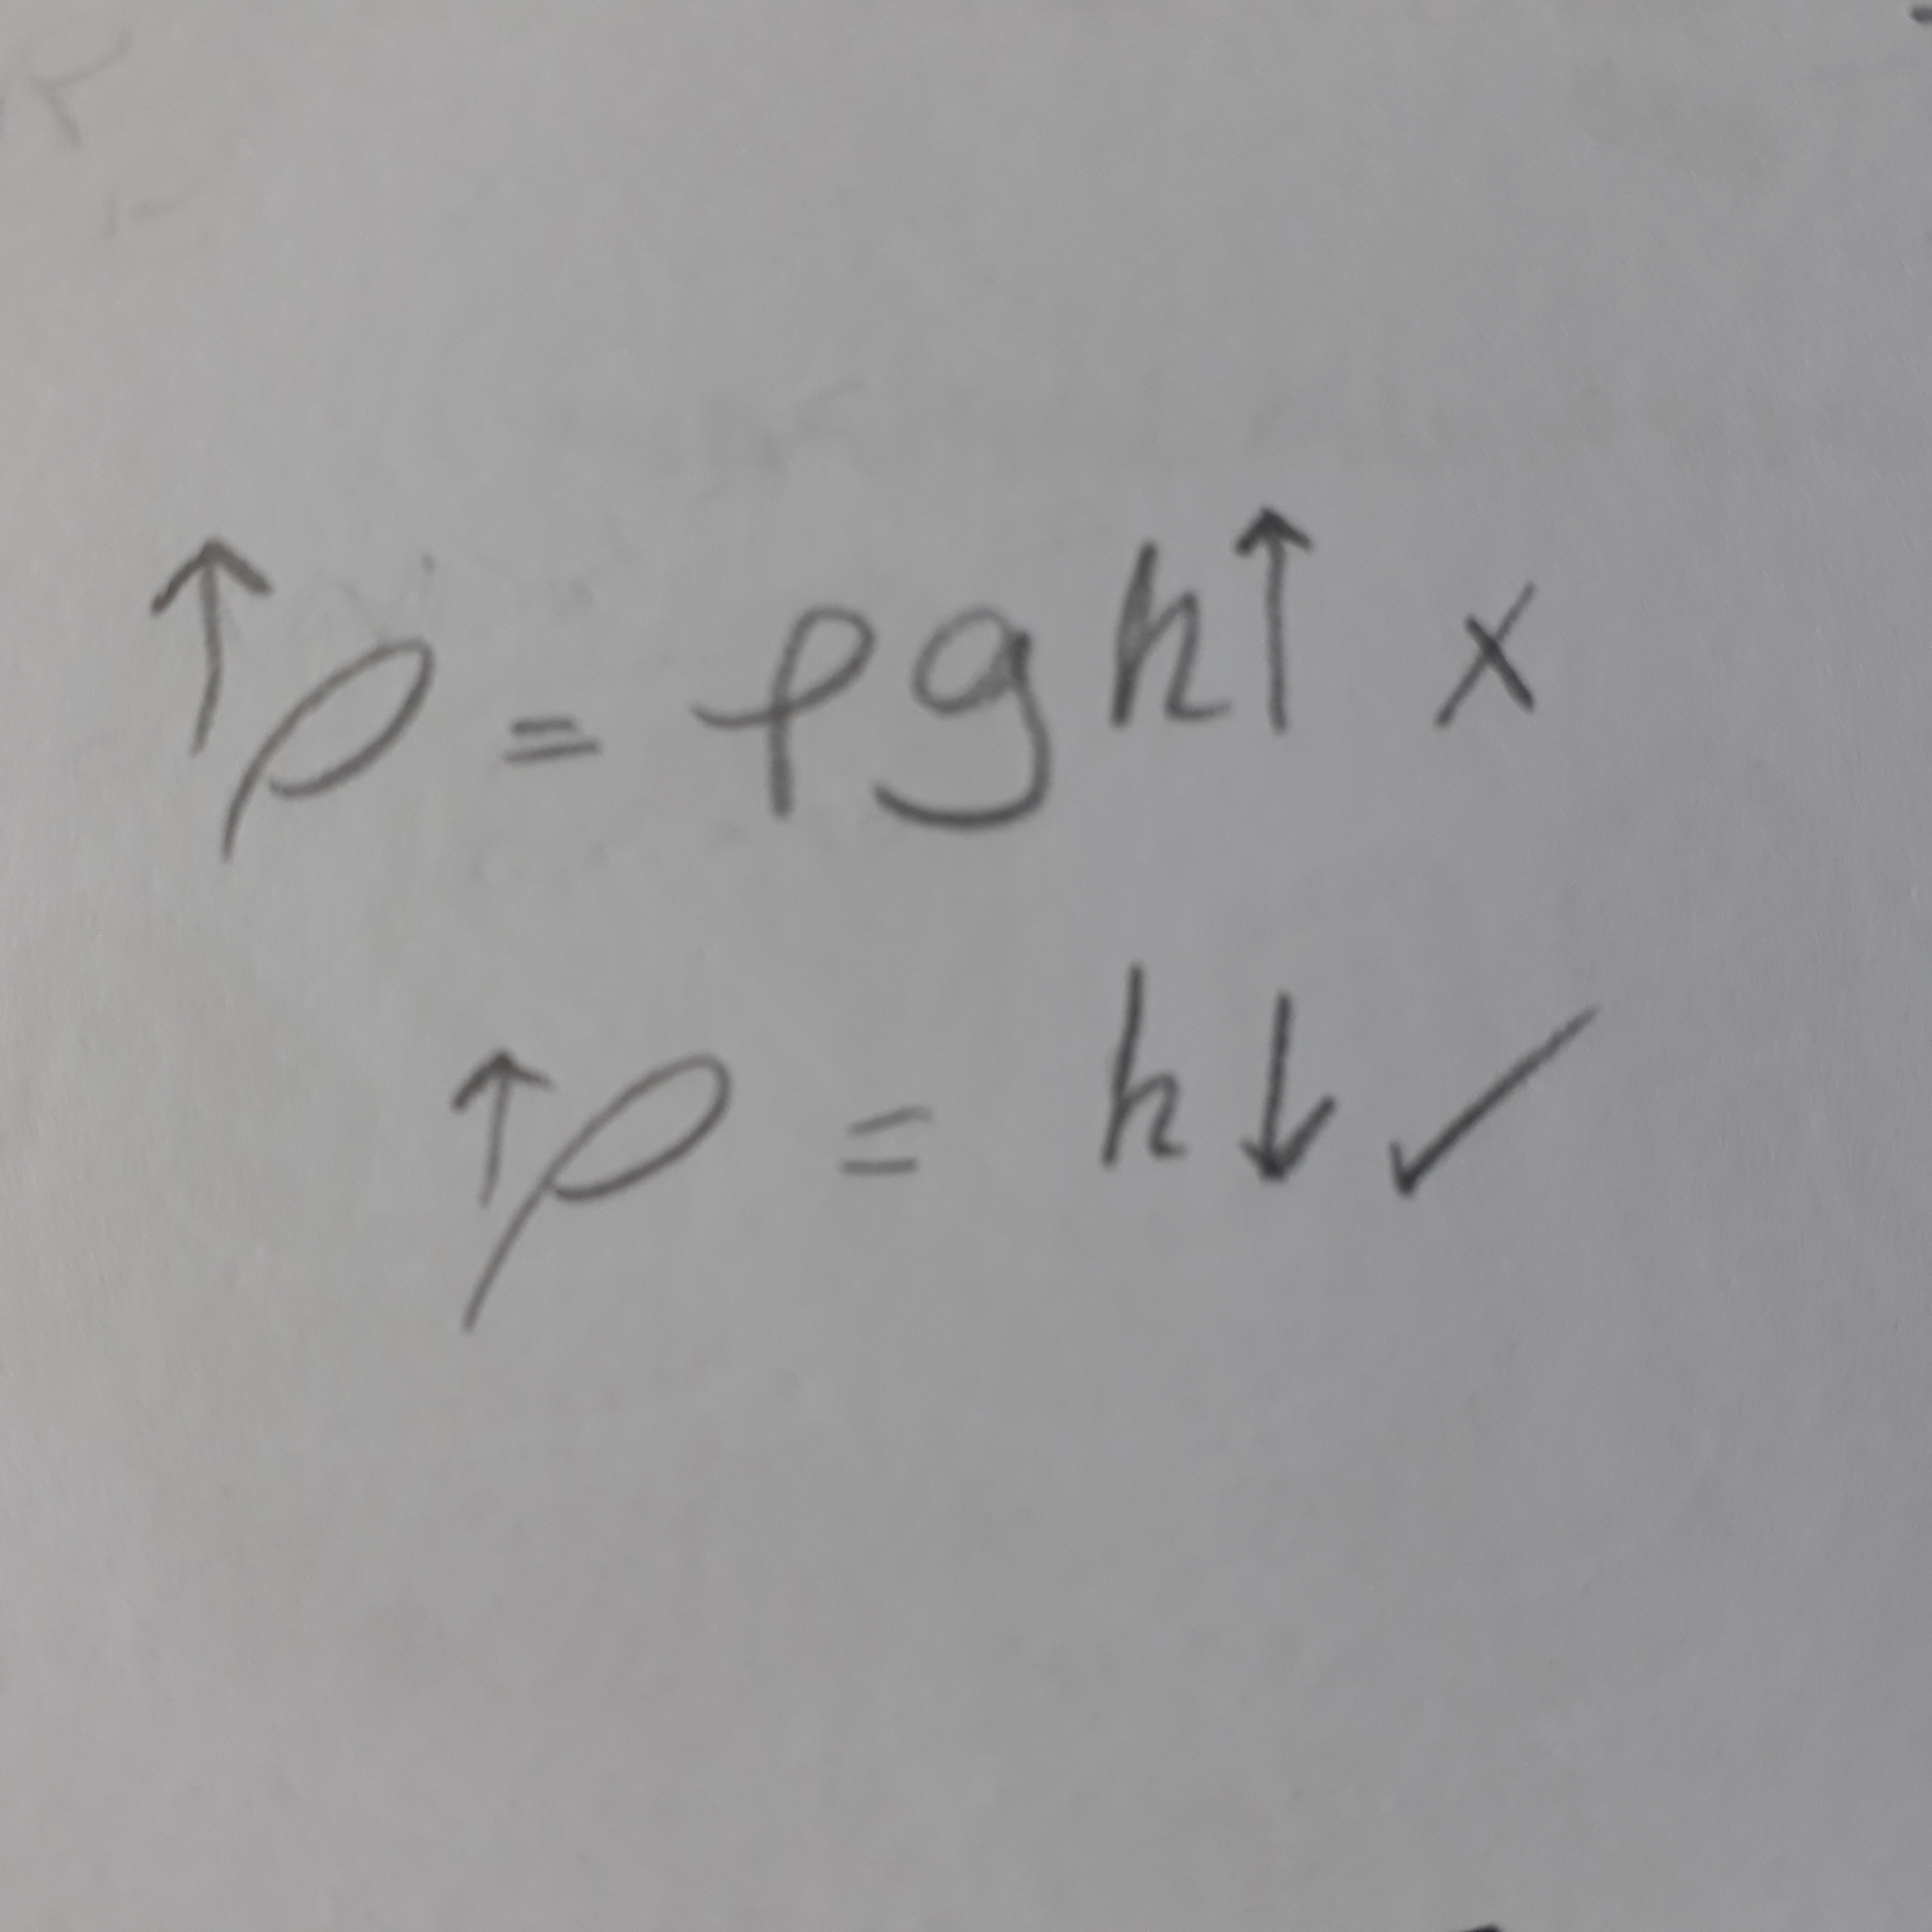 ↑ρ = ρgh↑ ×
↑ρ = h↓ ✓